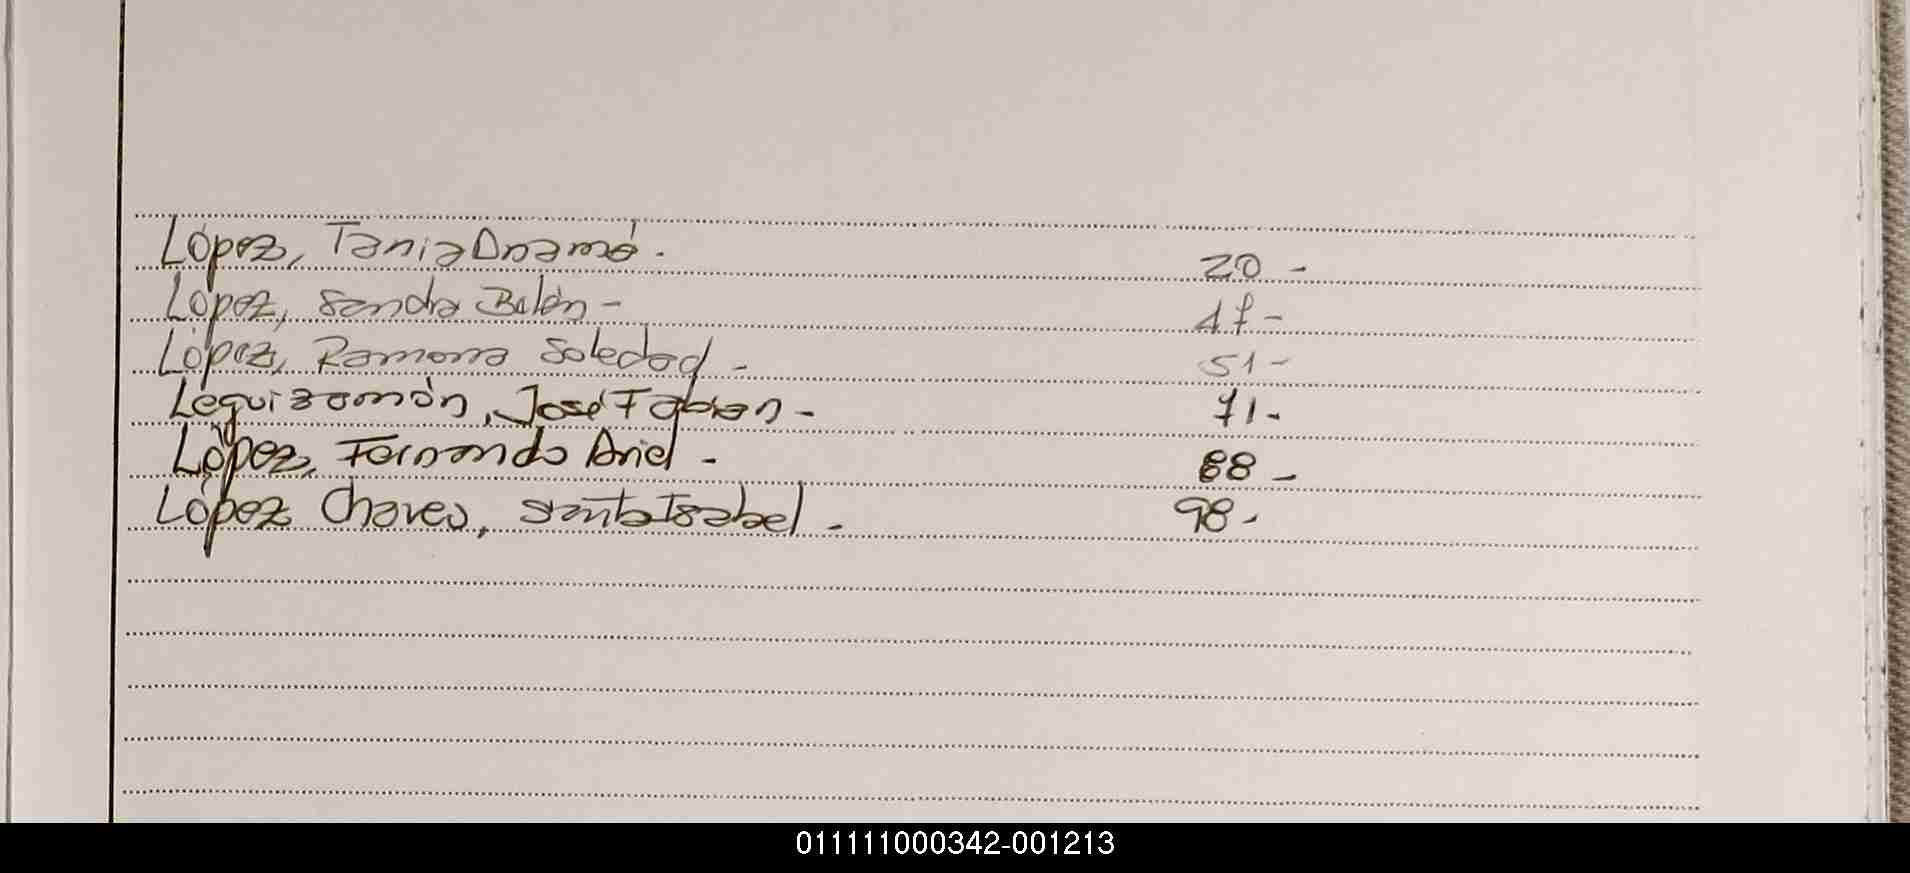 López, Tania Dnamá. 20-
López, Sandra Belén- 47-
López, Ramona Soledad- 51-
Leguizamón, José Fabian- 71-
López, Fernando Ariel- 88-
López Chaves, Santa Isabel- 98-
011111000342-001213